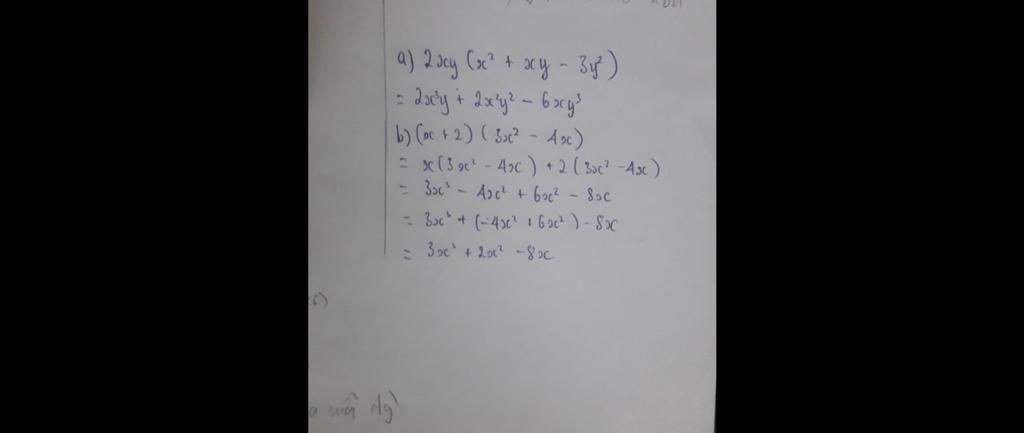 a) 2xy (x² + xy - 3y²)
= 2x³y + 2x²y² - 6xy³
b) (x + 2) (3x² - 4x)
= x(3x² - 4x) + 2(3x² - 4x)
= 3x³ - 4x² + 6x² - 8x
= 3x³ + (-4x² + 6x²) - 8x
= 3x³ + 2x² - 8x